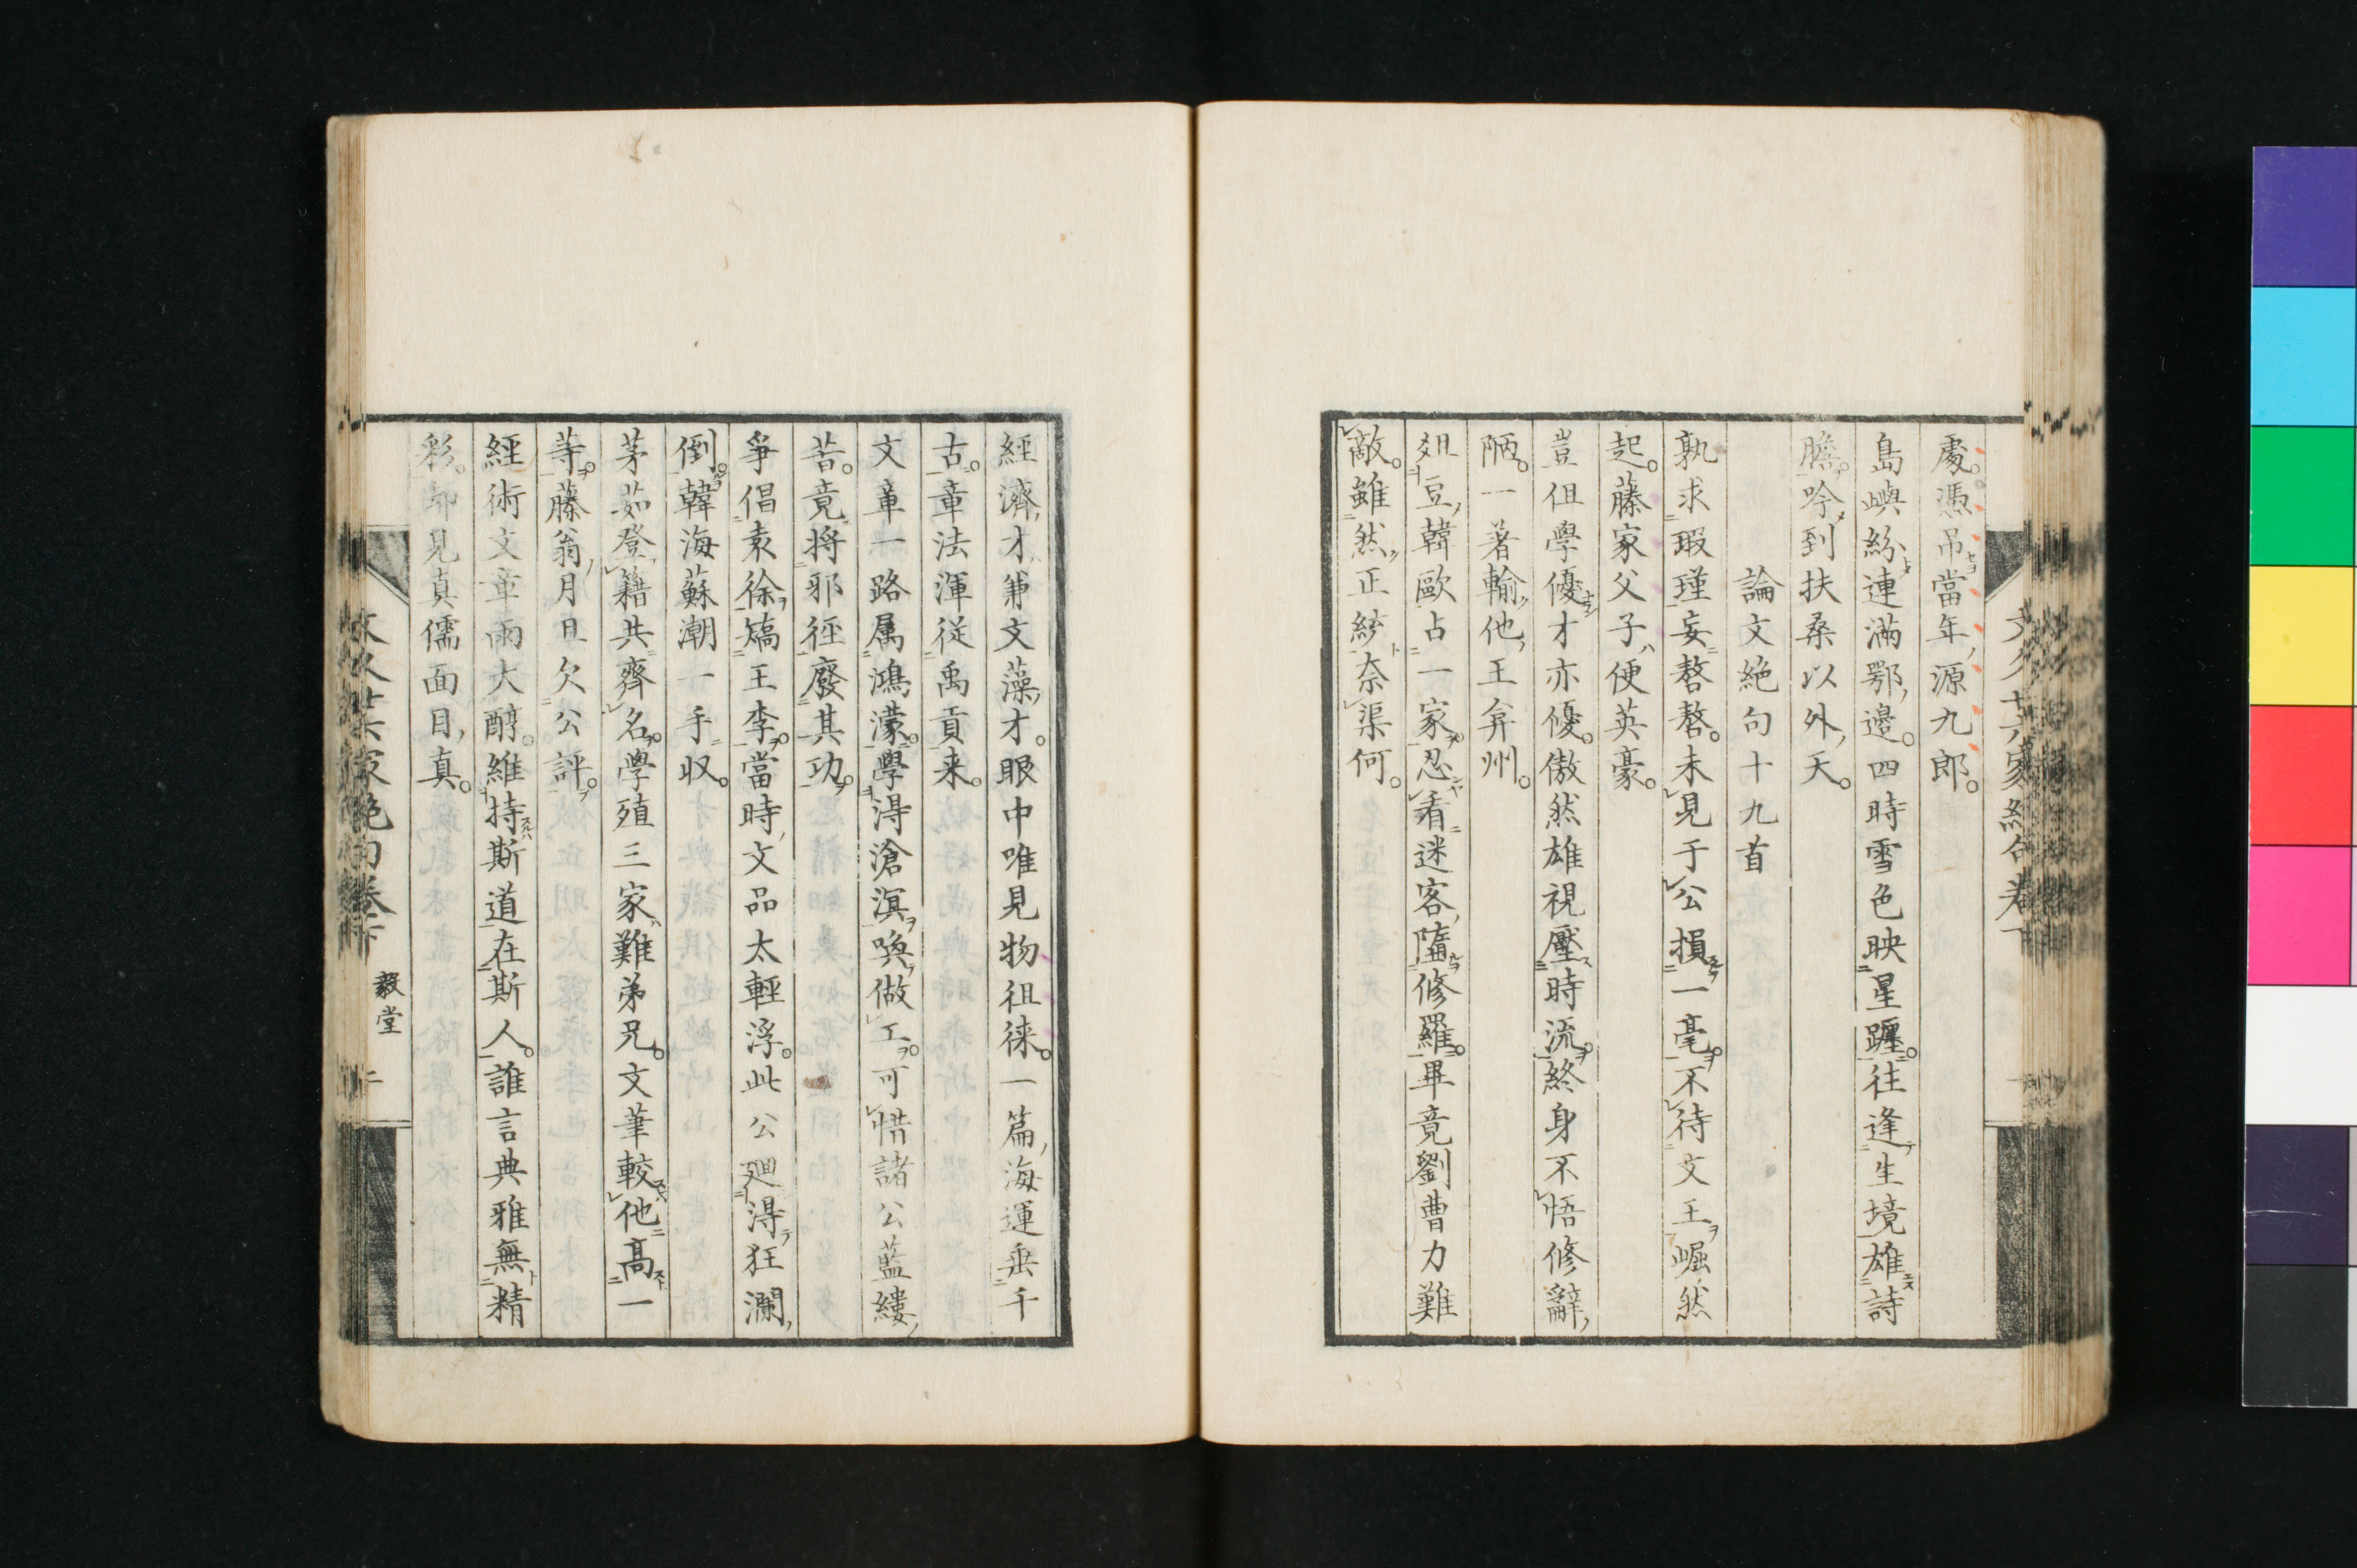 處。憑吊當年源九郎。
島嶼紛連滿鄂邊。四時雪色映星躔。往逢生境雄詩
膽。吟到扶桑以外天。
論文絕句十九首
孰求瑕瑾妄嗸嗸。未見于公損一毫。不待文王崛然
起。藤家父子便英豪。
豈但學優才亦優。傲然雄視壓時流。終身不悟修辭
陋。一著輸他王弇州。
俎豆韓歐占一家。忍看迷客墮修羅。畢竟劉曹力難
敵。雖然正統奈渠何。
經濟才兼文藻才。眼中唯見物徂徠。一篇海運垂千
古。章法渾従禹貢来。
文章一路属鴻濛。學得滄溟喚做工。可惜諸公藍縷
苦。竟將邪徑廢其功。
爭倡袁徐矯王李。當時文品太輕浮。此公廻得狂瀾
倒。韓海蘇潮一手収。
茅茹登籍共齊名。學殖三家難弟兄。文筆較他高一
等。藤翁月旦欠公評。
經術文章兩大醇。維持斯道在斯人。誰言典雅無精
彩。中見真儒面目真。
文久十六家絶句卷下
毅堂
二